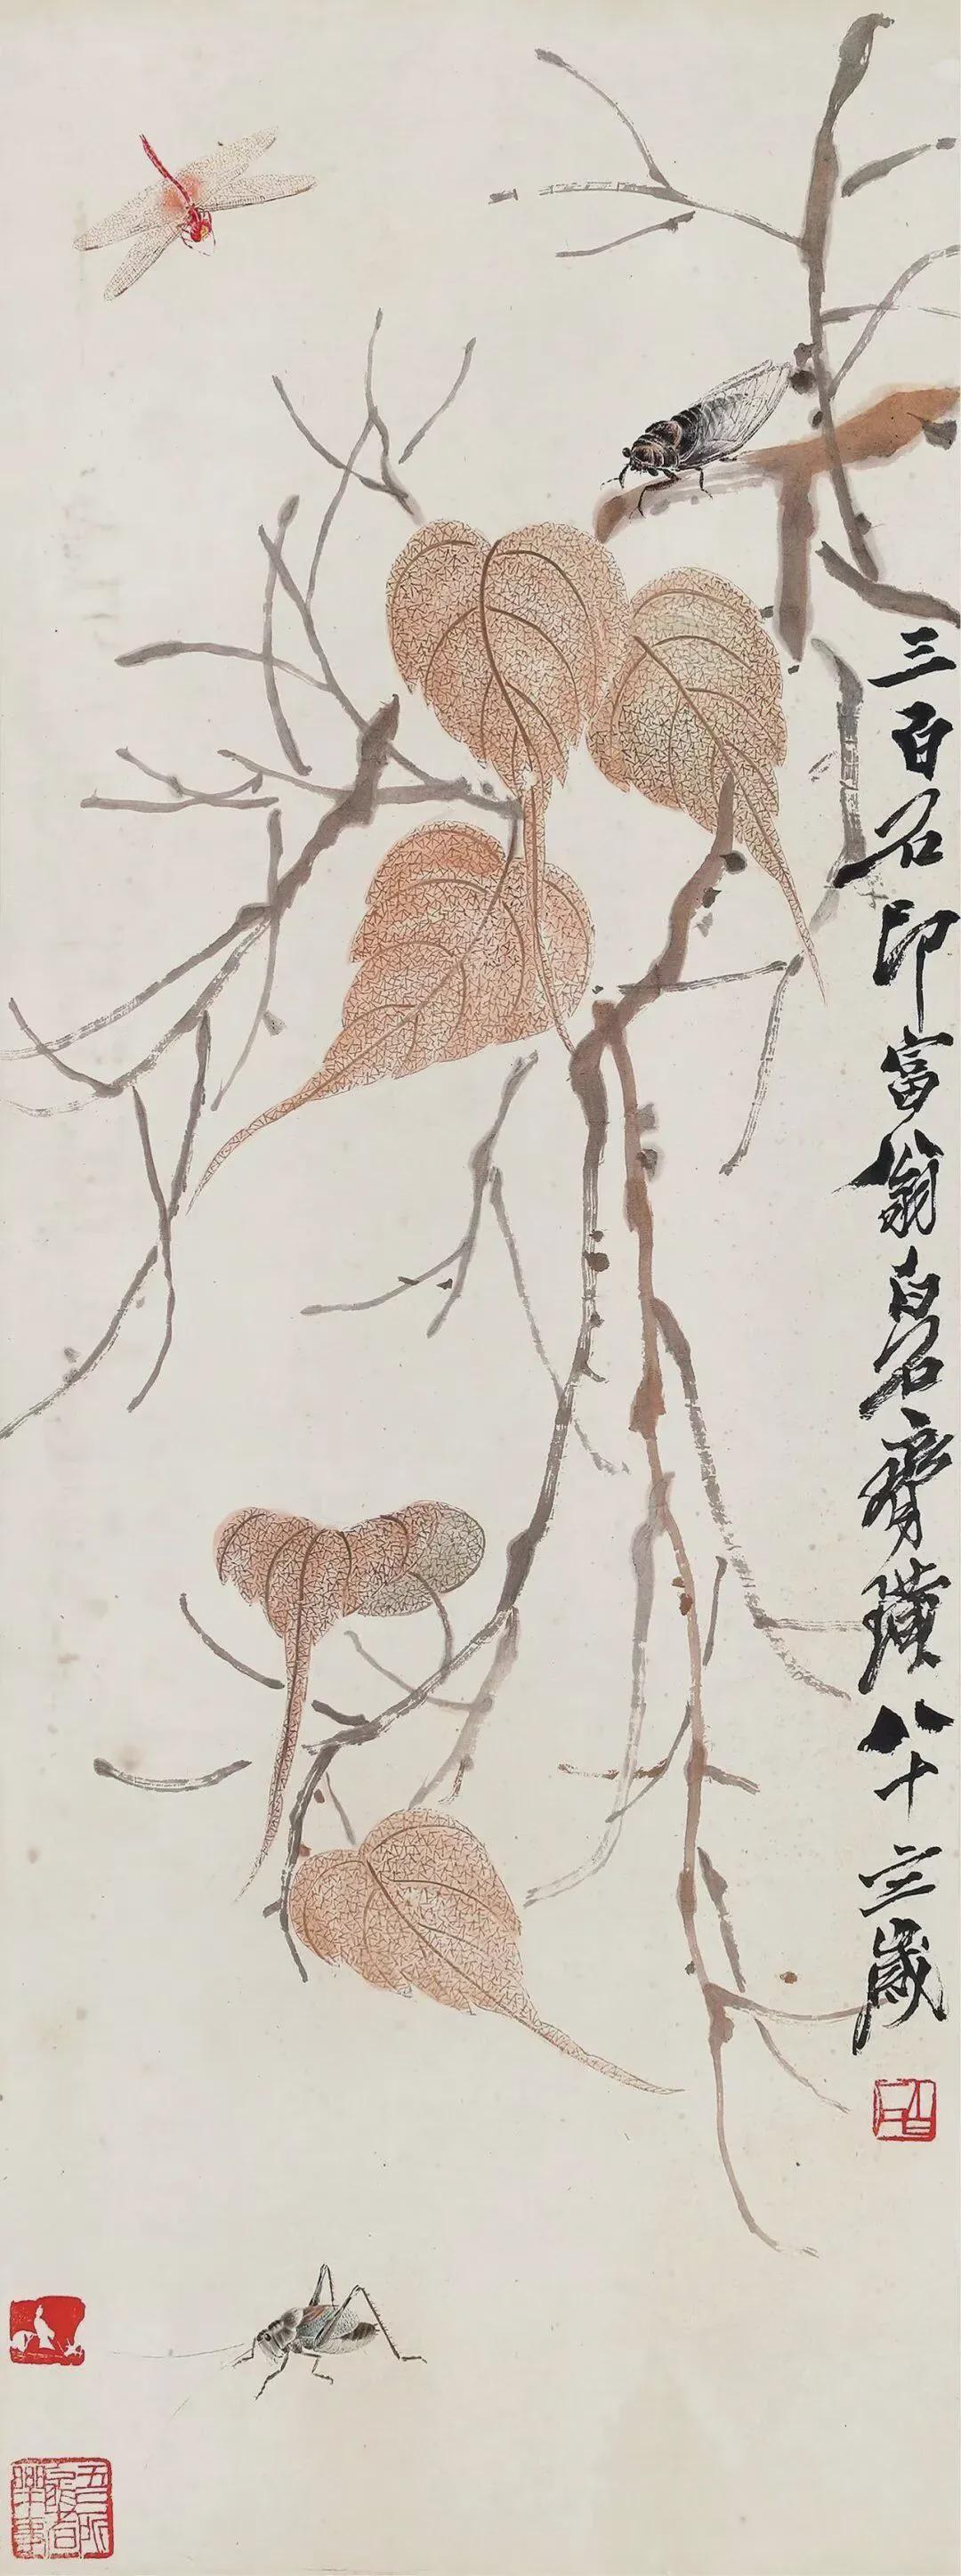 三百石印富翁白石齊璜八十三歲